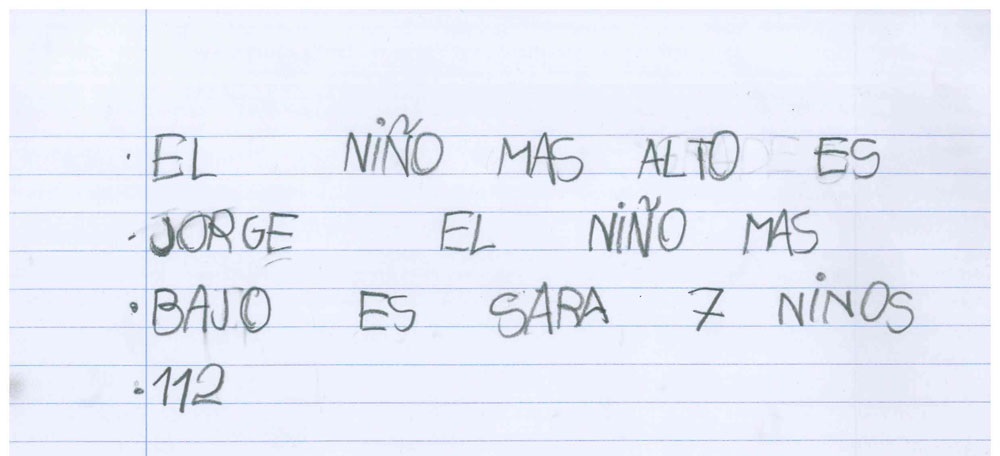 · EL NIÑO MAS ALTO ES
· JORGE EL NIÑO MAS
· BAJO ES SARA 7 NINOS
· 112